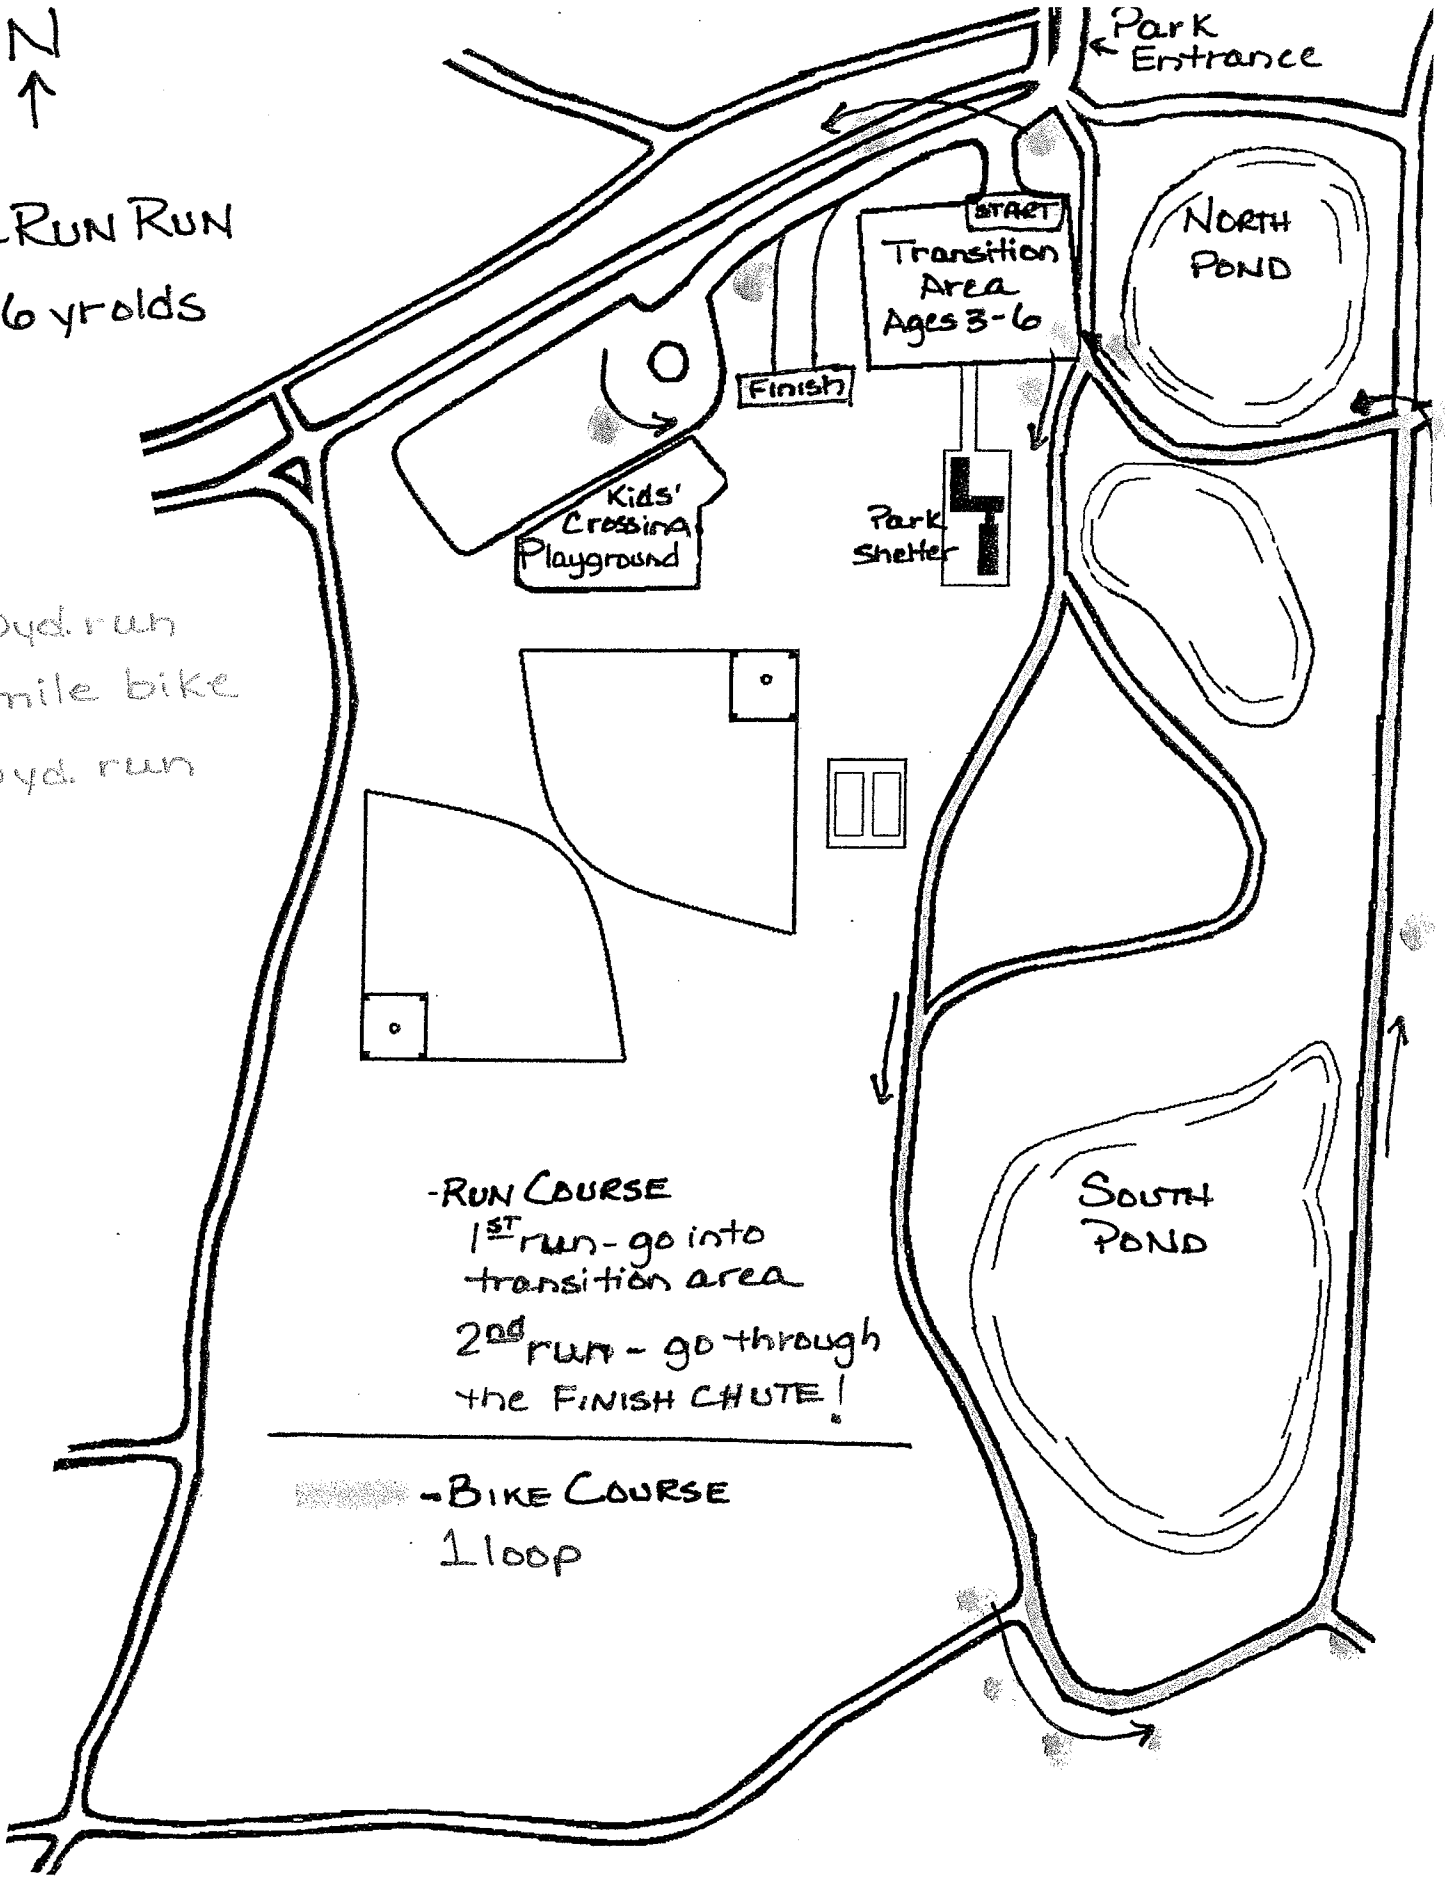 N
Park
Entrance
RUN RUN
6 yrolds
START
Transition
Area
Ages 3-6
NORTH
POND
FINISH
Kids'
Crossing
Playground
Park
Shelter
yd. run
mile bike
yd. run
SOUTH
POND
-RUN COURSE
1ST run - go into
transition area
2nd run - go through
the FINISH CHUTE!
-BIKE COURSE
1 loop